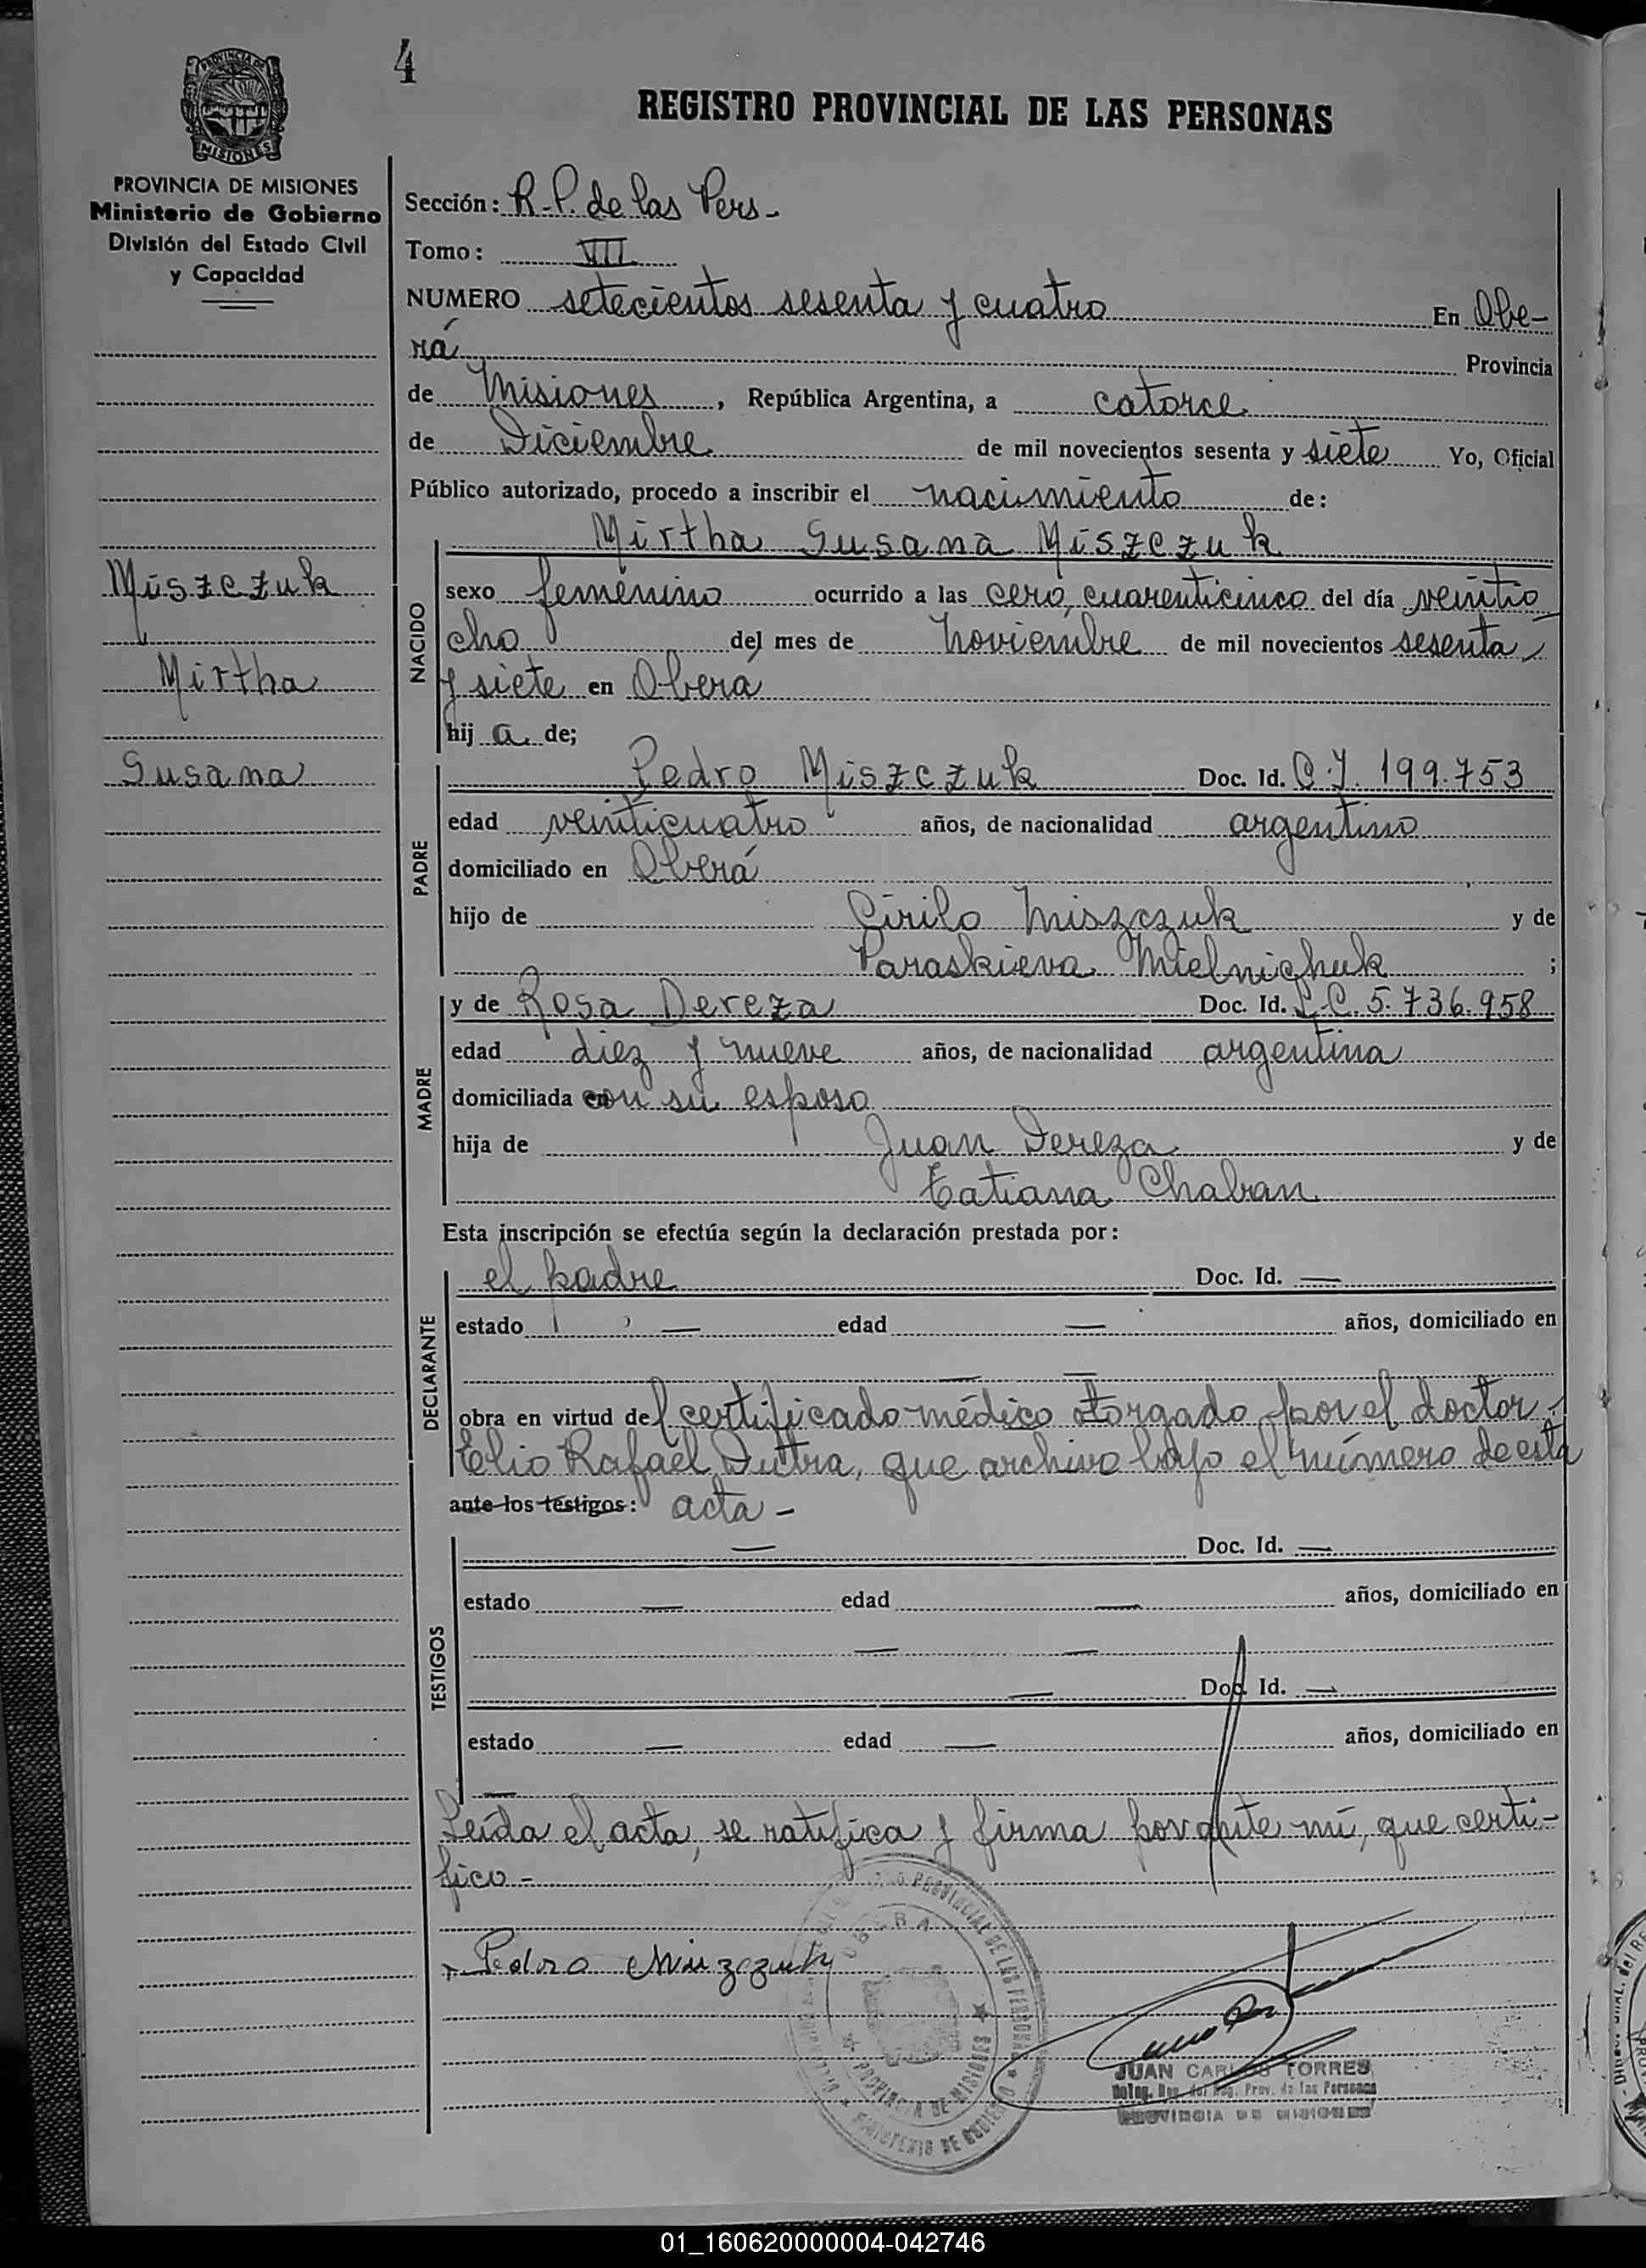 4
REGISTRO PROVINCIAL DE LAS PERSONAS
PROVINCIA DE
MISIONES
PROVINCIA DE MISIONES
Ministerio de Gobierno
División del Estado Civil
y Capacidad
Miszczuk
Mirtha
Susana
Sección: R.P. de las Pers-
Tomo: VII
NUMERO setecientos sesenta y cuatro En Obe-
rá Provincia
de Misiones, República Argentina, a catorce
de Diciembre de mil novecientos sesenta y siete Yo, Oficial
Público autorizado, procedo a inscribir el nacimiento de:
Mirtha Susana Miszczuk
NACIDO
sexo femenino ocurrido a las cero, cuarenticinco del día veintio
cho del mes de Noviembre de mil novecientos sesenta
y siete en Oberá
hij a de;
PADRE
Pedro Miszczuk Doc. Id. C.I. 199.753
edad veinticuatro años, de nacionalidad argentino
domiciliado en Oberá
hijo de Cirilo Miszczuk y de
Paraskieva Mielnichuk ;
MADRE
y de Rosa Dereza Doc. Id. L.C. 5.736.958
edad diez y nueve años, de nacionalidad argentina
domiciliada con su esposo
hija de Juan Dereza y de
Tatiana Chaban
Esta inscripción se efectúa según la declaración prestada por:
DECLARANTE
el padre Doc. Id. —
estado — edad — años, domiciliado en
— —
obra en virtud del certificado médico otorgado por el doctor
Elio Rafael Dutra, que archivo bajo el número de esta
ante los testigos: acta -
TESTIGOS
— Doc. Id. —
estado — edad — años, domiciliado en
— —
— Doc. Id. —
estado — edad — años, domiciliado en
—
Leída el acta, se ratifica y firma por ante mí, que certi-
fico -
Pedro Miszczuk
OBERA
PROVINCIA DE MISIONES
PROVINCIAL DE LAS PERSONAS
MINISTERIO DE GOBIERNO
JUAN CARLOS TORRES
Reg. Prov. de las Personas
PROVINCIA DE MISIONES
01_160620000004-042746